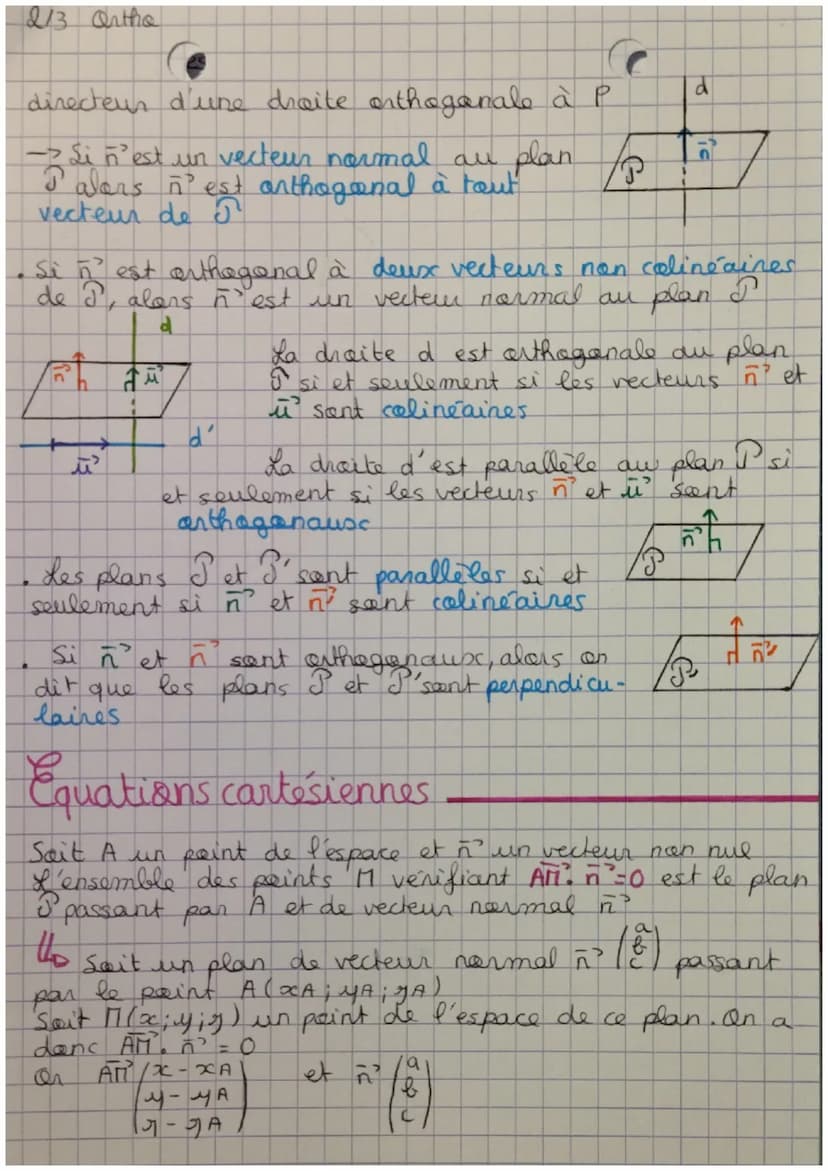 2/3 Ortho
directeur d'une droite orthogonale à P
d
→ Si n⃗ est un vecteur normal au plan
n⃗
P
P alors n⃗ est orthogonal à tout
vecteur de P
. Si n⃗ est orthogonal à deux vecteurs non colinéaires
de P, alors n⃗ est un vecteur normal au plan P
d
La droite d est orthogonale au plan
n⃗ u⃗
P si et seulement si les vecteurs n⃗ et
u⃗ sont colinéaires
d'
u⃗'
La droite d' est parallèle au plan P si
et seulement si les vecteurs n⃗ et u⃗' sont
orthogonaux
n⃗
P
. Les plans P et P' sont parallèles si et
seulement si n⃗ et n⃗' sont colinéaires
n⃗'
P'
. Si n⃗ et n⃗' sont orthogonaux, alors on
dit que les plans P et P' sont perpendicu-
laires
Équations cartésiennes
Soit A un point de l'espace et n⃗ un vecteur non nul
L'ensemble des points M vérifiant AM⃗. n⃗ = 0 est le plan
P passant par A et de vecteur normal n⃗
↳ Soit un plan de vecteur normal n⃗ (a b c) passant
par le point A(xA; yA; zA)
Soit M(x; y; z) un point de l'espace de ce plan. On a
donc AM⃗. n⃗ = 0
Or AM⃗ (x - xA et n⃗ (a
y - yA b
z - zA) c)